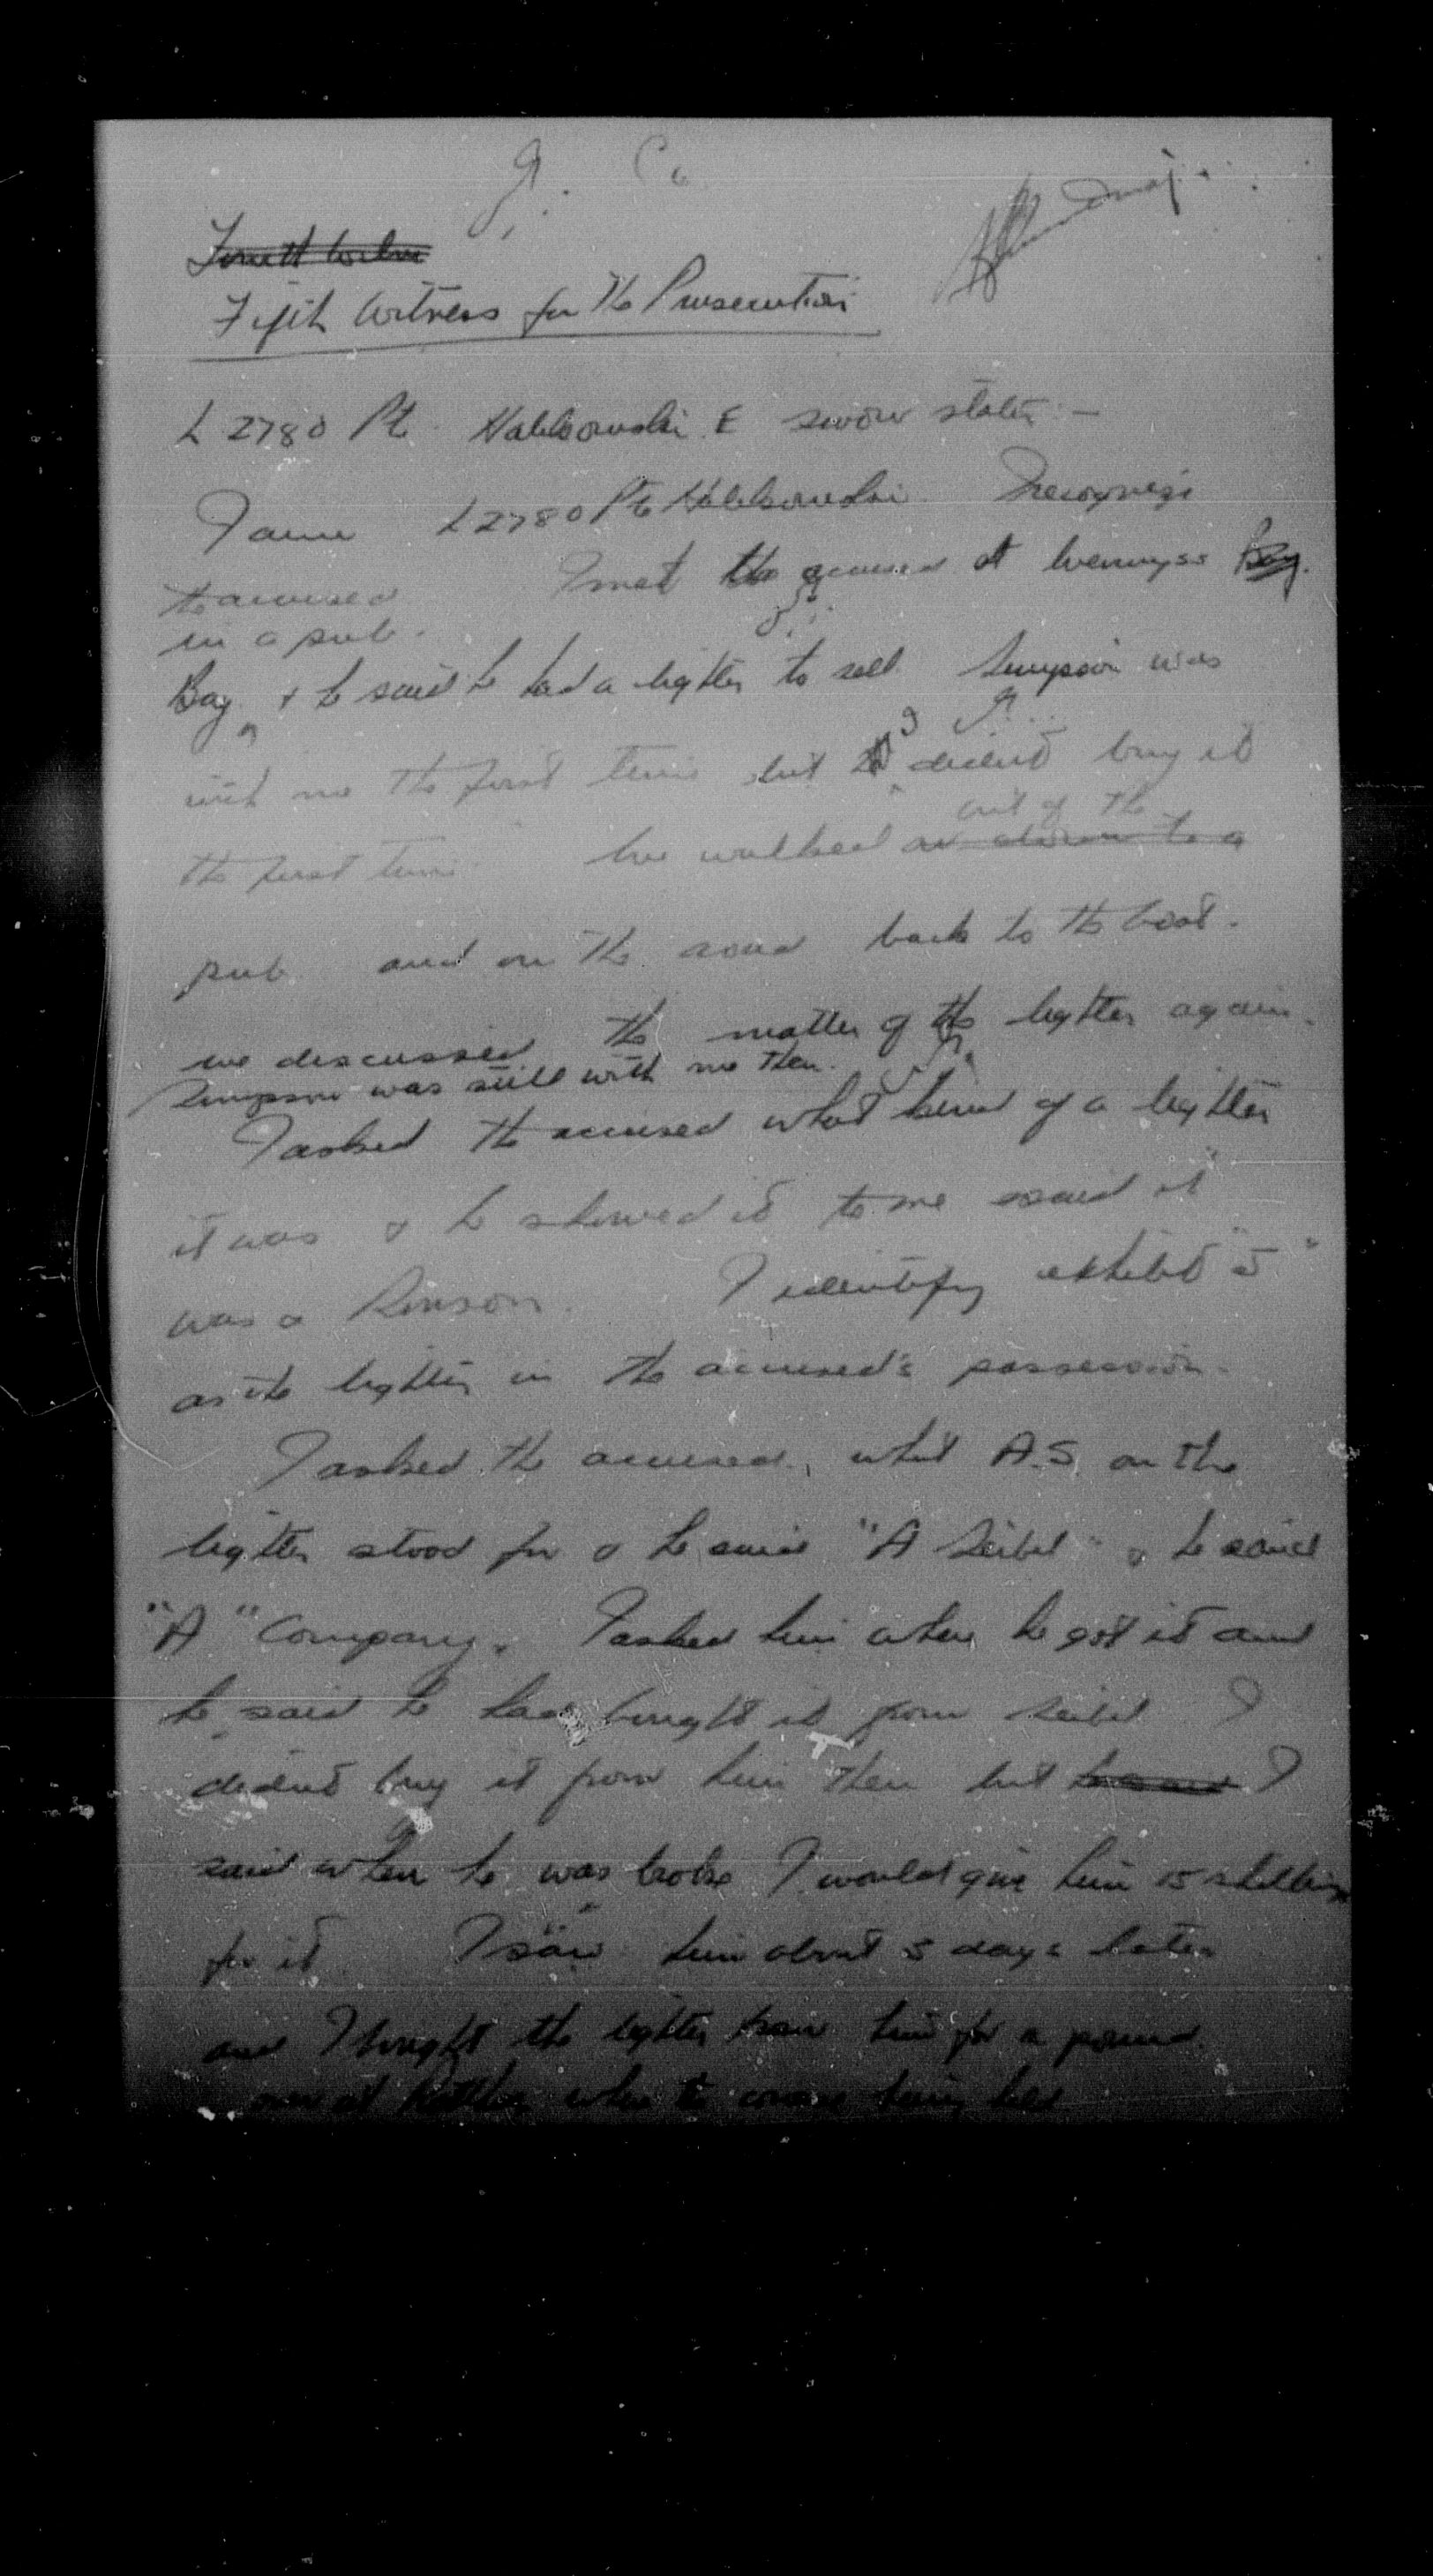 Fifth Witness for the Prosecution
L 2780 Pte E sworn states :—
I am L 2780 Pte I recognize
the accused I met the accused at Wemyss Bay
in a pub.
Bay & he said he had a lighter to sell Simpson was
with me the first time but I didn't buy it
the first time We walked
out of the
pub and on the road back to the boat.
we discussed the matter of the lighter again.
Simpson was still with me then.
I asked the accused what kind of a lighter
it was & he showed it to me & said it
was a Ronson. I identify exhibit
as the lighter in the accused's possession.
I asked the accused, what A.S. on the
lighter stood for & he said "A Seibel" & he said
"A" Company. I asked him where he got it and
he said he had bought it from Seibel I
didn't buy it from him then but I
said when he was broke I would give him 15 shillings
for it I saw him about 5 days later
and I bought the lighter from him for a pound.